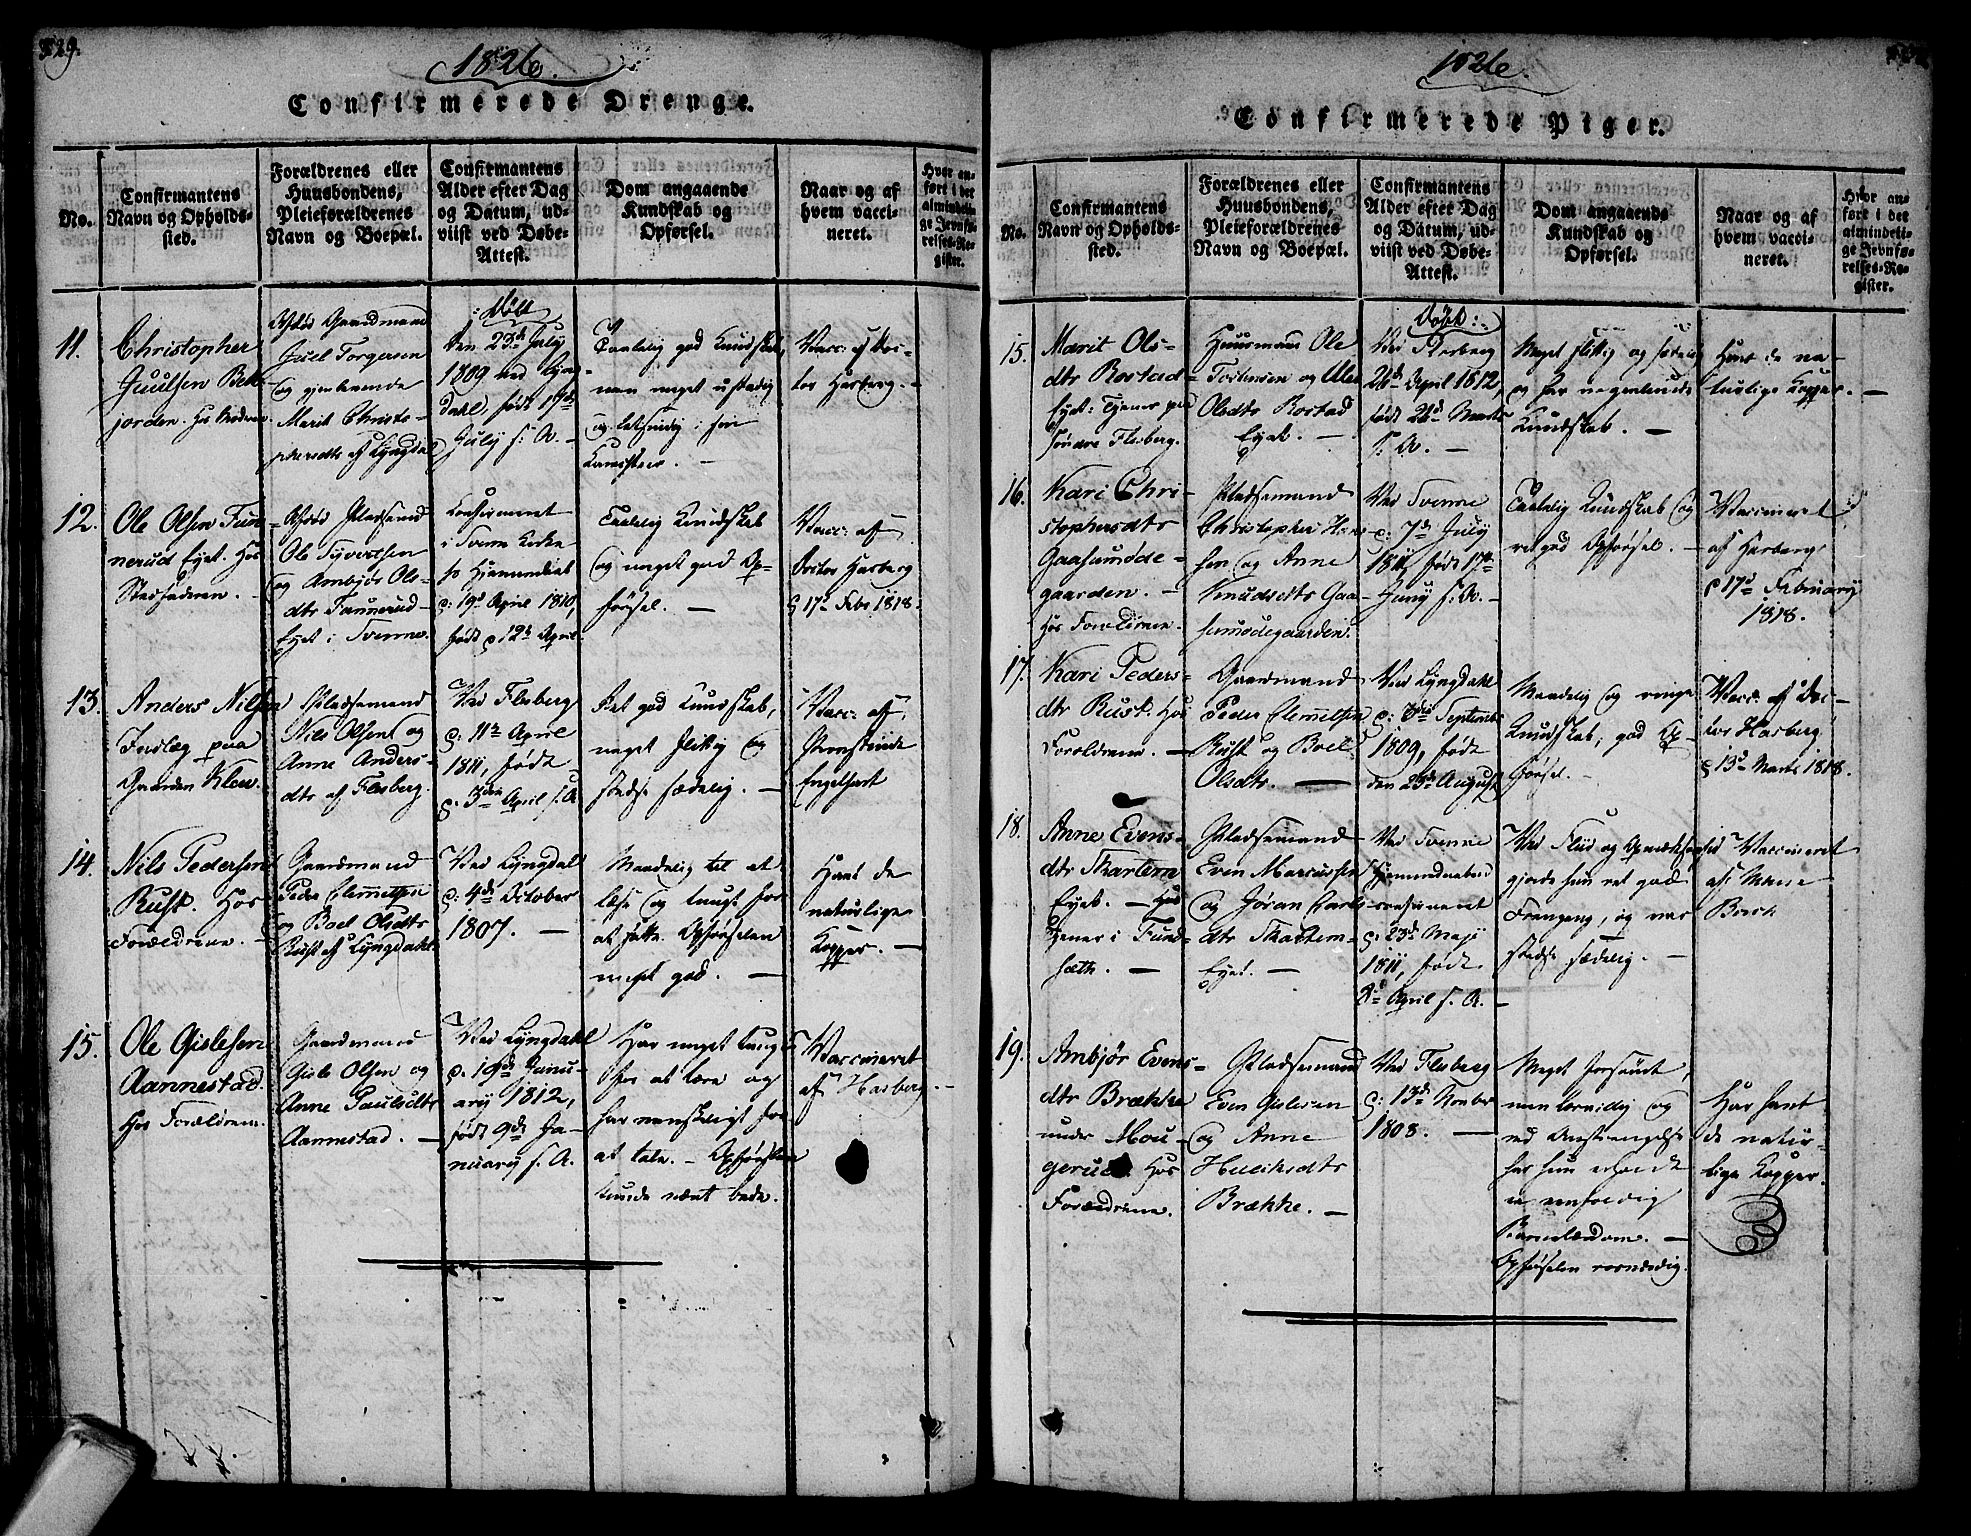 1826.
Confirmerede Drenge.
No.
Confirmantens
Navn og Opholds-
sted.
Forældrenes eller
Huusbondens,
Pleieforældrenes
Navn og Boepæl.
Confirmantens
Alder efter Dag
og Datum, ud-
viist ved Døbe-
Attest.
Dom angaaende
Kundskab og
Opførsel.
Naar og af
hvem vacci-
neret.
Hvor an-
ført i det
almindeli-
ge Jevnfø-
relses-Re-
gister.
11.
Christopher
Juulsen
jorden. Hos Moderen
Gaardmand
Juel Torgersen
og gjenlevende
Marit Christo-
phersdtr af Lyngdal
døbt
den 23de July
1809 ved Lyng-
dahl, født 17de
July s: A. -
Taalelig god Kundskab,
men meget ustadig
og letsindig i sin
Vacc: af Doc-
tor Harberg. -
12.
Ole Olsen Tun-
nerud Eyet. Hos
Stedfaderen. -
Afdød Pladsemd
Ole Syvertsen
og Ambjør Ols-
dtr Taunerud-
Eyet i Svenne.
Confirmeret
i Svenne Kirke
fr Hjemmedøbt
d: 19de April 1810,
født d 12te April.
Taalelig Kundskab
og meget god Op-
førsel. -
Vacc: af
Doctor Harberg
d 17de Febr 1818.
13.
Anders Nilsen
Indlæg paa
Gaarden Kleve.
Pladsemand
Nils Olsen og
Anne Anders-
dtr af Flesberg.
Ved Flesberg
d: 11te April
1811, født
d: 3die April s. A
Ret god Kundskab,
meget flittig og
stedse sædelig. -
Vacc: af
Engelhart
14.
Nils Pedersen
Rust. Hos
Forældrene. -
Gaardmand
Peder Clemmetsen
og Boel Olsdtr
Rust af Lyngdahl
Ved Lyngdal
d: 4de October
1807. -
Maadelig til at
læse og tungt for
at fatte. Opførselen
meget god. -
Havt de
naturlige
Kopper. -
15.
Ole Gislesen
Aannestad.
Hos Forældrene.
Gaardmand
Gisle Olsen og
Anne Paulsdtr
Aannestad. -
Ved Lyngdahl
d: 19de Janu-
ary 1812,
født 9de Ja-
nuary s. A.
Har meget tungt
for at lære og
har vanskeligt for
at tale. - Opførselen
kunde været bedre.
Vaccineret
af Harberg. -
1826.
Confirmerede Piger.
No.
Confirmantens
Navn og Opholds-
sted.
Forældrenes eller
Huusbondens,
Pleieforældrenes
Navn og Boepæl.
Confirmantens
Alder efter Dag
og Datum, ud-
viist ved Døbe-
Attest.
Dom angaaende
Kundskab og
Opførsel.
Naar og af
hvem vacci-
neret.
Hvor an-
ført i det
almindeli-
ge Jevnfø-
relses-Re-
gister.
15.
Marit Ols-
dtr Rostad-
Eyet: Tjener paa
søndre Flesberg.
Huusmand Ole
Torstensen og
Olsdtr Rostad
Eyet. -
Døbt:
Ved Flesberg
26de April 1812,
født 26de Marts
s: A. -
Meget flittig og sædelig
og har nogenlunde
Kundskab. -
Havt de na-
turlige Kopper. -
16.
Kari Chri-
stophersdtr
Gaasumøde-
gaarden. -
Hos Forældrene.
Pladsemand
Christopher Han-
sen og Anne
Knudsdtr Gaa-
sumødegaarden.
Ved Svenne
d: 7de July
1811, født 17de
Juny s. A. -
Taalelig Kundskab og
ret god Opførsel. -
Vaccineret
af Harberg
d 17de February
1818.
17.
Kari Peders-
dtr Rust. Hos
Forældrene. -
Gaardmand
Peder Clemmetsen
Rust og Boel
Olsdtr. -
Ved Lyngdahl
d: September
1809, født
den 23de August
Maadelig og ringe
Kundskab, god Op-
førsel. -
Vacc. af Doc-
tor Harberg
d 13de Marts 1818.
18.
Anne Evens-
dtr Skartem
Eyet. -
Tjener i Fund-
sæth. -
Pladsemand
Even Marcussen
og Jøran Carls-
dtr Skartem-
Eyet. -
Ved Svenne
Hjemmedøbt
confirmeret
d: 23de Maji
1811, født
April s. A. -
Ved Fliid og Opmærksomhed
gjorde hun ret god
Fremgang, og var
stedse sædelig. -
Vaccineret
af
19.
Ambjør Evens-
dtr Brække
under Mou-
gerud. Hos
Forældrene.
Pladsemand
Even Gislesen
og Anne
Brække. -
Ved Flesberg
d: 13de Novber
1808. -
Meget forsømt,
men lærvillig og
ved Anstrengelse
har hun erholdt
en nødvendig
Opførselen
Har havt
de natur-
lige Kopper.